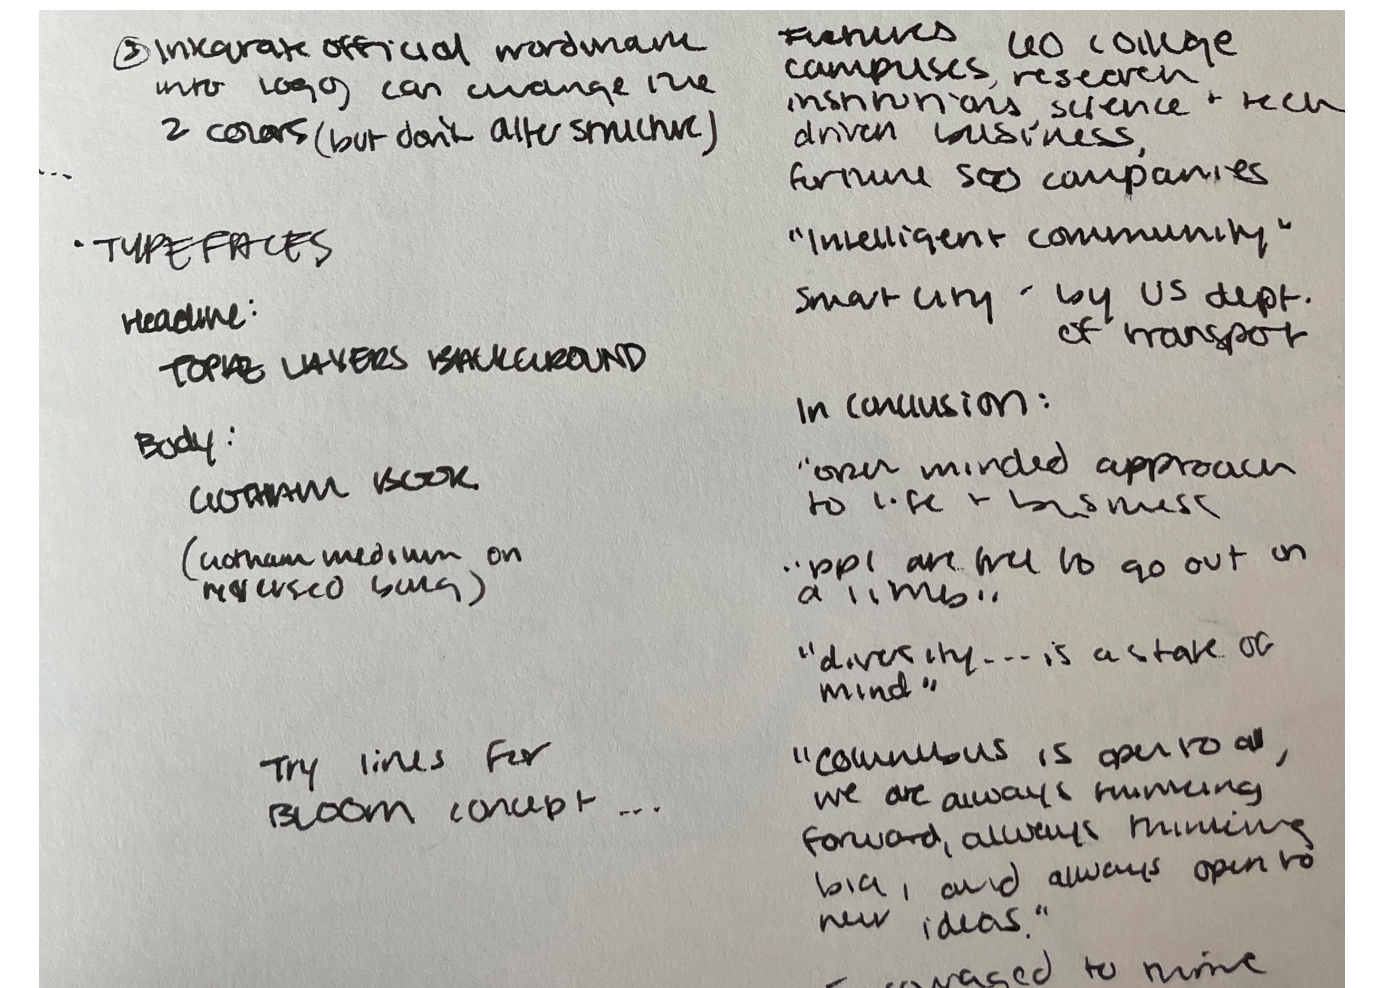 ③ Integrate official wordmark
into logo, can change the
2 colors (but don't alter structure)
...
• TYPEFACES
Headline:
TOPAZ LAYERS BACKGROUND
Body:
GOTHAM BOOK
(Gotham medium on
reversed
Try lines for
BLOOM concept ...
Features 60 college
campuses, research
institutions, science + tech
driven business,
fortune 500 companies
"Intelligent community"
Smart City - by US dept.
of transport
In conclusion:
"open minded approach
to life + business
"ppl are free to go out on
a limb"
"diversity... is a state of
mind"
"Columbus is open to all,
we are always thinking
forward, always thinking
big, and always open to
new ideas."
to